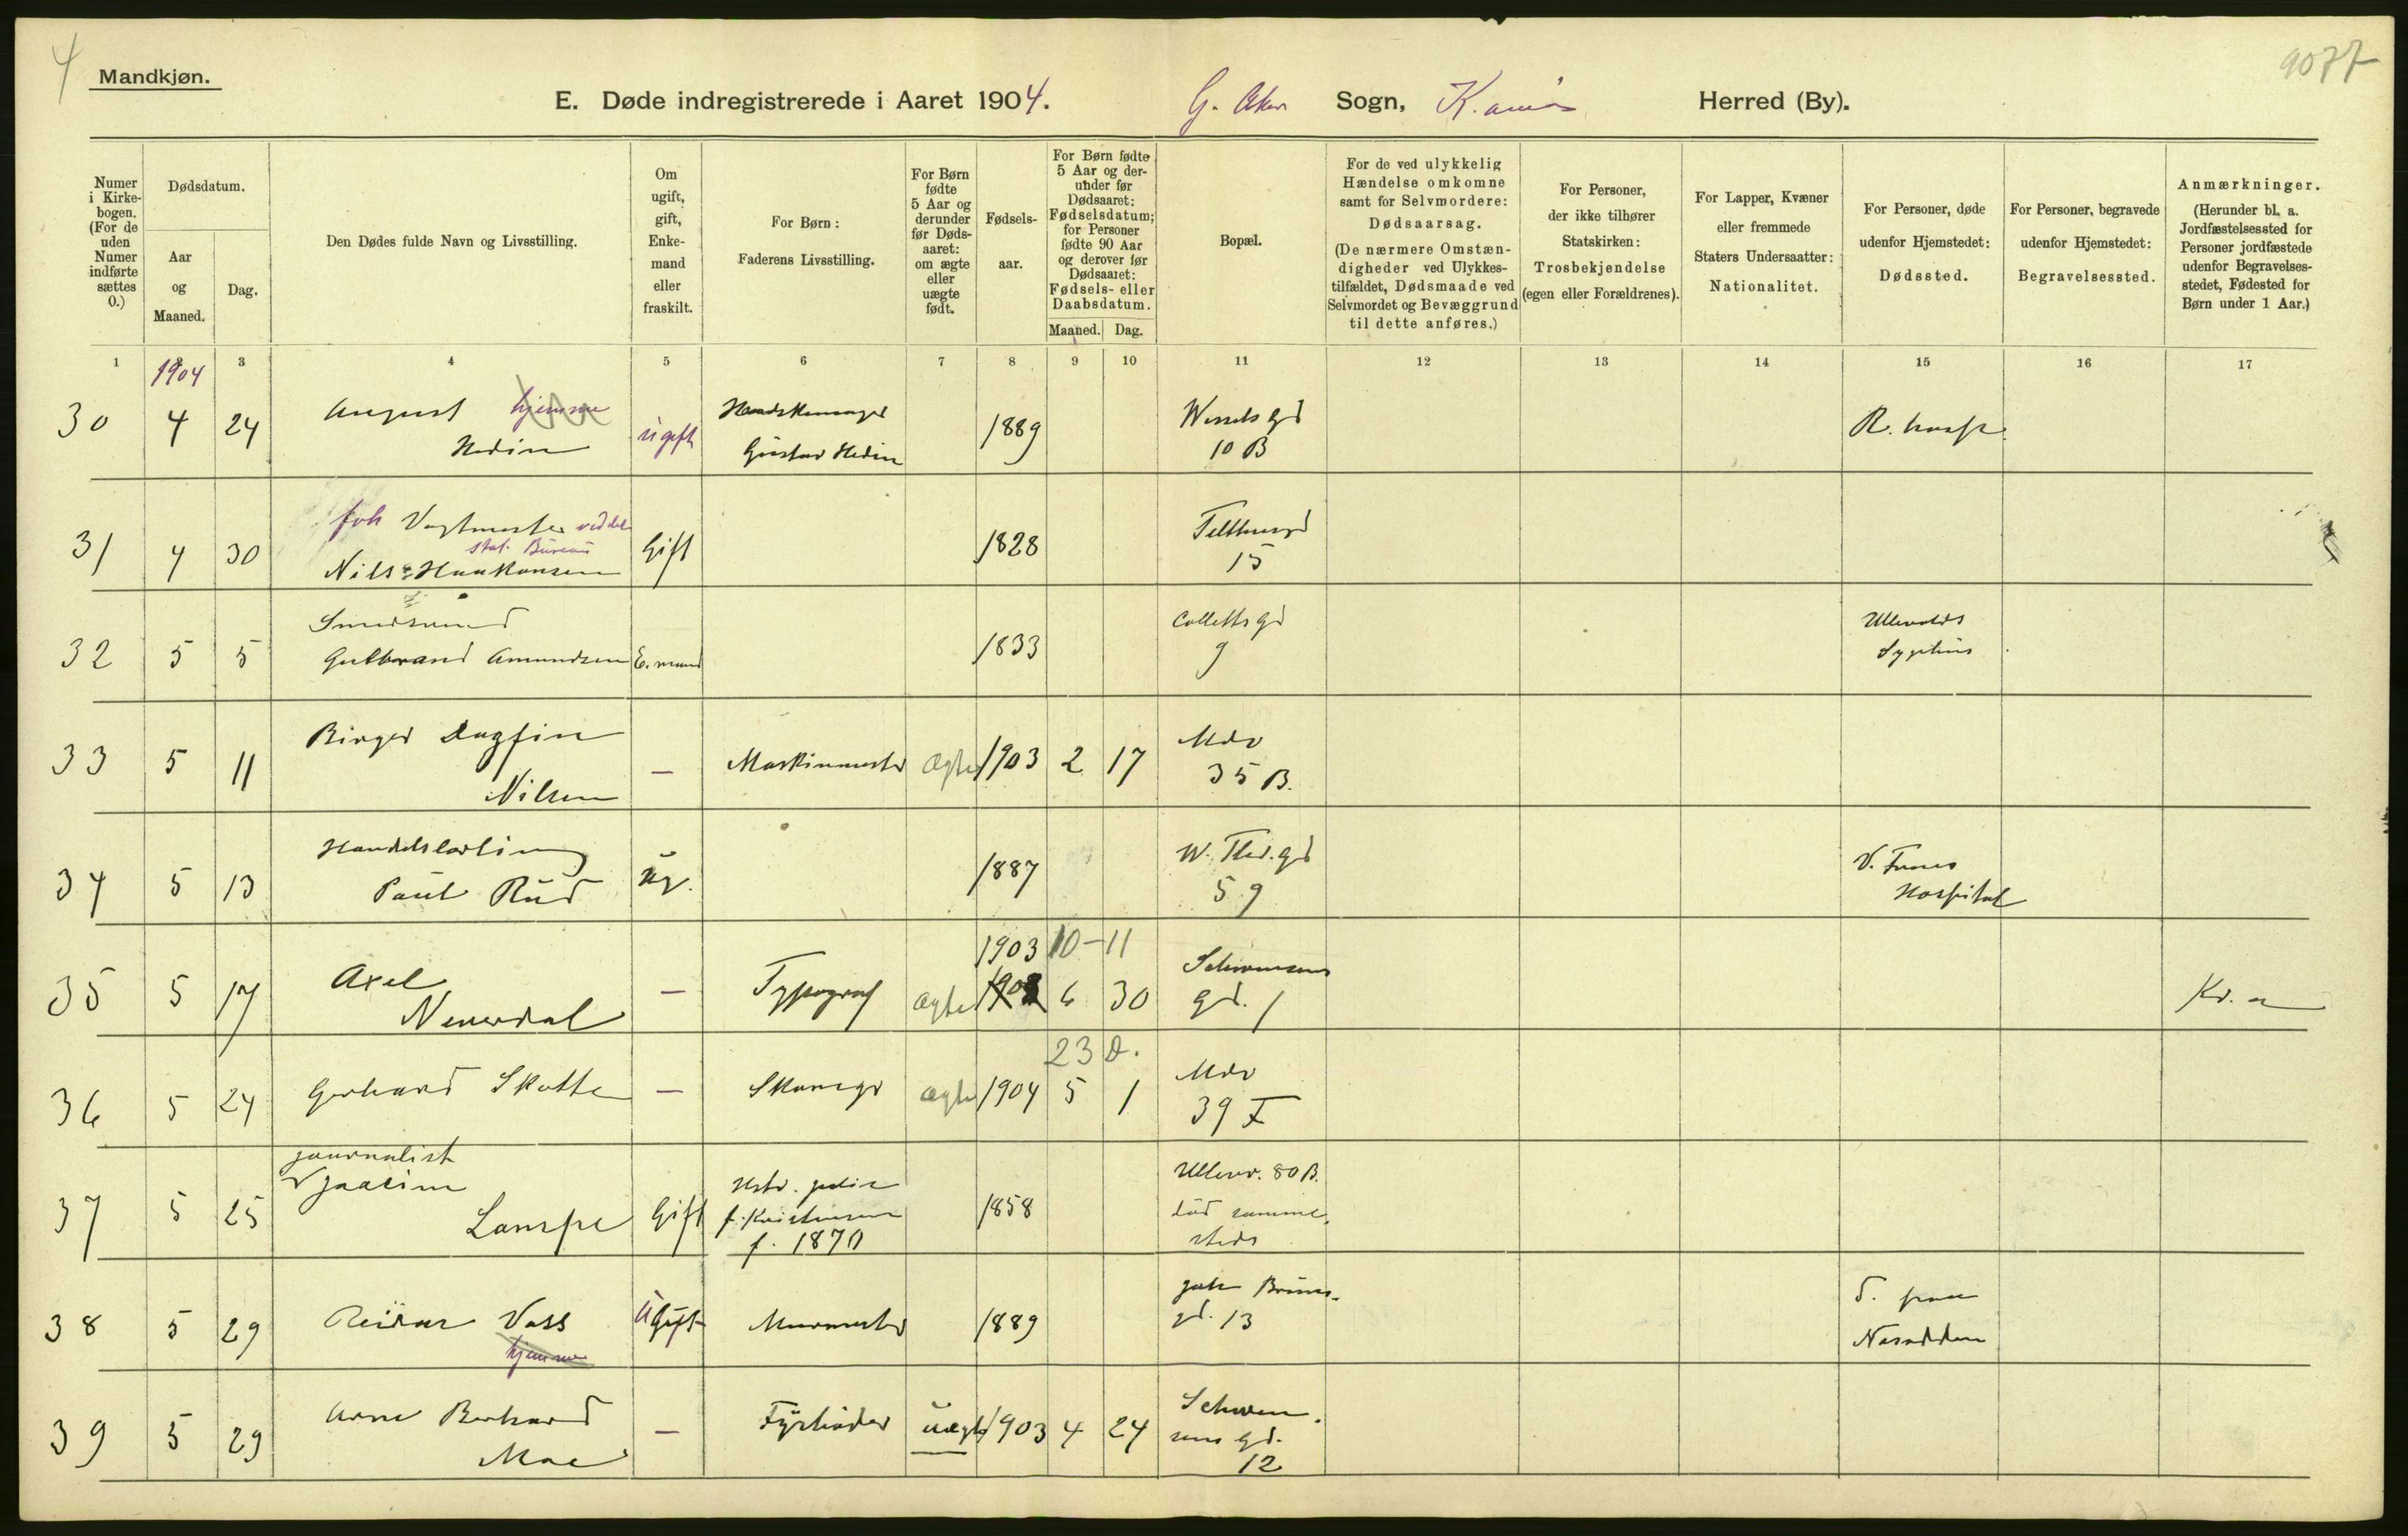 4
Mandkjøn.
9077
E. Døde indregistrerede i Aaret 1904. G. Aker Sogn, K.ania Herred (By).
Numer i Kirkebogen. (For de uden Numer indførte sættes 0.)
Dødsdatum.
Aar og Maaned.
Dag.
Den Dødes fulde Navn og Livsstilling.
Om ugift, gift, Enkemand eller fraskilt.
For Børn: Faderens Livsstilling.
For Børn fødte 5 Aar og derunder før Dødsaaret: om ægte eller uægte født.
Fødselsaar.
For Børn fødte 5 Aar og derunder før Dødsaaret: Fødselsdatum; for Personer fødte 90 Aar og derover før Dødsaaret: Fødsels- eller Daabsdatum.
Maaned. Dag.
Bopæl.
For de ved ulykkelig Hændelse omkomne samt for Selvmordere: Dødsaarsag. (De nærmere Omstændigheder ved Ulykkestilfældet, Dødsmaade ved Selvmordet og Bevæggrund til dette anføres.)
For Personer, der ikke tilhører Statskirken: Trosbekjendelse (egen eller Forældrenes).
For Lapper, Kvæner eller fremmede Staters Undersaatter: Nationalitet.
For Personer, døde udenfor Hjemstedet: Dødssted.
For Personer, begravede udenfor Hjemstedet: Begravelsessted.
Anmærkninger. (Herunder bl. a. Jordfæstelsessted for Personer jordfæstede udenfor Begravelsesstedet, Fødested for Børn under 1 Aar.)
1 2 3 4 5 6 7 8 9 10 11 12 13 14 15 16 17
1904
30 4 24 August hjemme Hedin ugift Gustav Hedin 1889 Wessels gd 10 B R. hosp.
31 4 30 foh Vagtmester ved det stat. Bureau Nils Haakonsen Gift 1828 Telthusgd 15
32 5 5 Smedsvend Gulbrand Amundsen E.mand 1833 Colletts gd 9 Ullevolds Sygehus
33 5 11 Birger Dagfin Nilsen — Maskinmester Ægte 1903 2 17 Mdv 35 B.
34 5 13 Handelslærling Paul Rud ug. 1887 W. Thr. gd 59 V. Frues Hospital
1903 10-11
35 5 17 Axel Neverdal — Typograf ægte 6 30 Schwensens gd. 1 Kr. a
23 D.
36 5 24 Gerhard Skotte — Skomgr ægte 1904 5 1 Mdv 39 F
37 5 25 journalist Joacim Lampe Gift Hstr. f. Kristensen f. 1870 1858 Ullevv. 80 B. død sammesteds
38 5 29 Reidar Voss hjemme Ugift Murmester 1889 Joh Bruns gd. 13 d. paa Nesodden
39 5 29 Arne Berhard Moe — Fyrbøder uægte 1903 4 24 Schwensens gd. 12